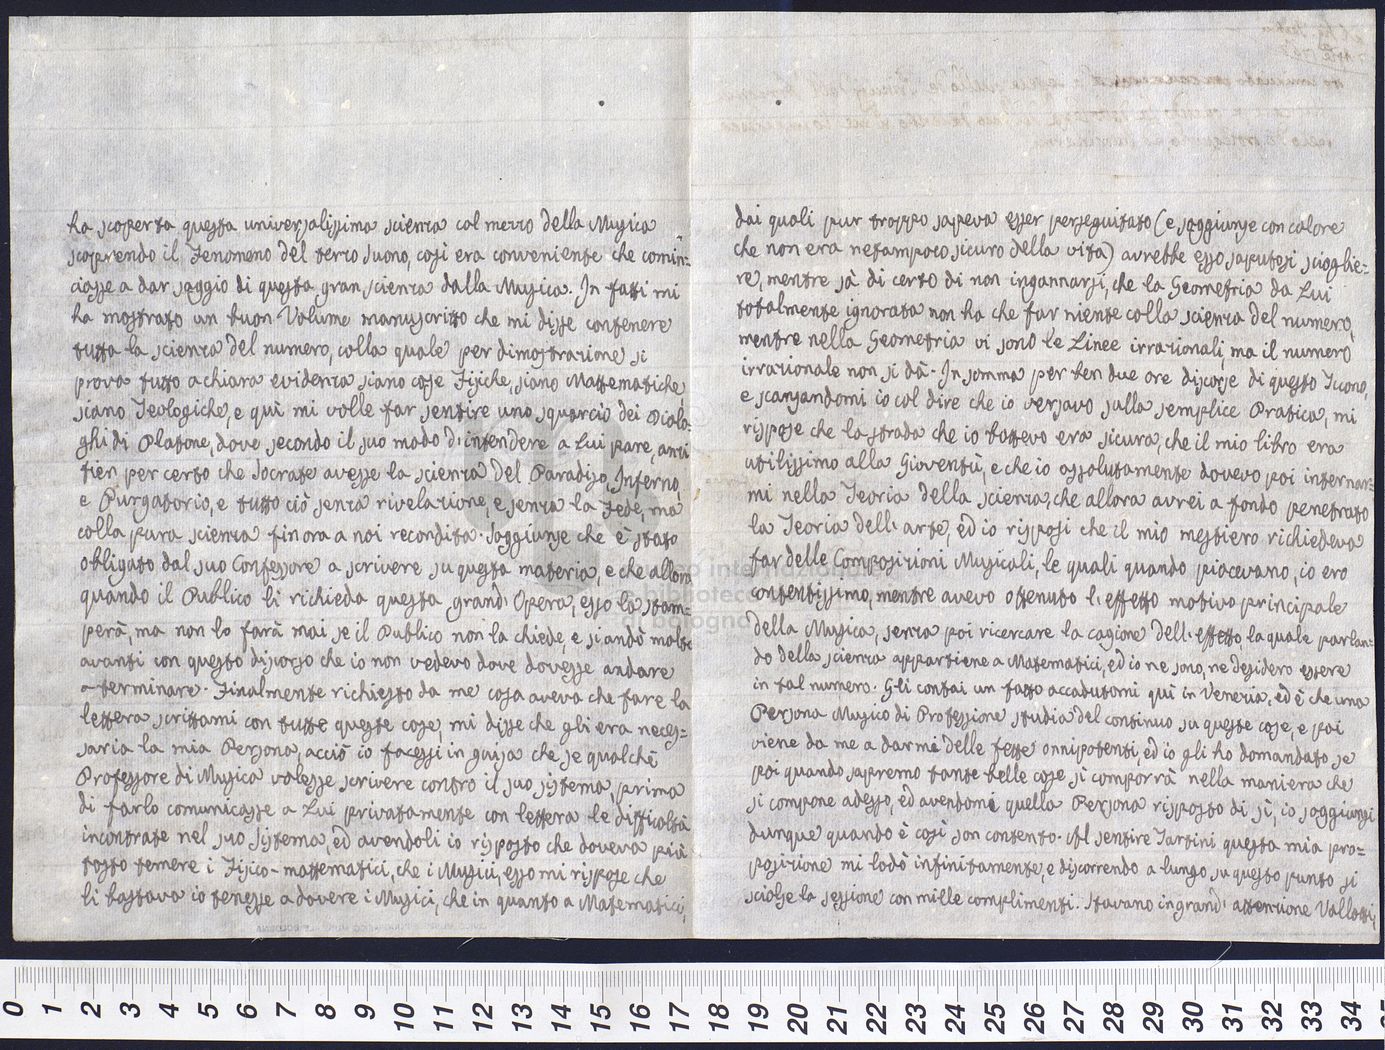 ha scoperta questa universalissima scienza col mezzo della Musica
scoprendo il Fenomeno del terzo suono, così era conveniente che comin=
ciasse a dar saggio di questa gran scienza dalla Musica. In fatti mi
ha mostrato un buon Volume manuscritto che mi disse contenere
tutta la scienza del numero, colla quale per dimostrazione si
prova tutto a chiara evidenza siano cose Fisiche, siano Mattematiche,
siano Teologiche, e quì mi volle far sentire uno squarcio dei Dialo-
ghi di Platone, dove secondo il suo modo d'intendere a Lui pare, anzi
tien per certo che Socrate avesse la scienza del Paradiso, Inferno,
e Purgatorio, e tutto ciò senza rivelazione, e senza la Fede, ma
colla pura scienza finora a noi recondita. Soggiunse che è stato
obligato dal suo Confessore a scrivere su questa materia, e che allora
quando il Publico li richieda questa grand' Opera, esso la stam=
perà, ma non lo farà mai se il Publico non la chiede, e si andò molto
avanti con questo discorso che io non vedevo dove dovesse andare
a terminare. Finalmente richiesto da me cosa aveva che fare la
lettera scrittami con tutte queste cose, mi disse che gli era neces=
saria la mia Persona, acciò io facessi in guisa che se qualchè
Professore di Musica volesse scrivere contro il suo sistema, prima
di farlo comunicasse a Lui privatamente con lettera le difficoltà
incontrate nel suo Sistema, ed avendoli io risposto che doveva più
tosto temere i Fisico-mattematici, che i Musici, esso mi rispose che
li bastava io tenesse a dovere i Musici, che in quanto a Matematici,
dai quali pur troppo sapeva esser perseguitato (e soggiunse con calore
che non era netampoco sicuro della vita) avrebbe esso saputosi scioglie=
re, mentre sà di certo di non ingannarsi, che la Geometria da Lui
totalmente ignorata non ha che far niente colla scienza del numero,
mentre nella Geometria vi sono le Linee irrazionali, ma il numero
irrazionale non si dà. In somma per ben due ore discorse di questo Tuono,
e scansandomi io col dire che io versavo sulla semplice Pratica, mi
rispose che la strada che io battevo era sicura, che il mio libro era
utilissimo alla Gioventù, e che io assolutamente dovevo poi internar=
mi nella Teoria della scienza, che allora avrei a fondo penetrato
la Teoria dell' arte, ed io risposi che il mio mestiero richiedeva
far delle Composizioni Musicali, le quali quando piacevano, io ero
contentissimo, mentre avevo ottenuto l' effetto motivo principale
della Musica, senza poi ricercare la cagione dell' effetto la quale parlan=
do della scienza appartiene a Matematici, ed io ne sono, ne desidero essere
in tal numero. Gli contai un fatto accadutomi quì in Venezia, ed è che una
Persona Musico di Professione studia del continuo su queste cose, e poi
viene da me a darmi delle feste onnipotenti, ed io gli ho domandato se
poi quando sapremo tante belle cose si comporrà nella maniera che
si compone adesso, ed avendomi quella Persona risposto di sì, io soggiunsi
dunque quando è così son contento. Al sentire Tartini questa mia pro=
posizione mi lodò infinitamente, e discorrendo a lungo su questo punto si
sciolse la sessione con mille complimenti. Stavano in grand' attenzione Vallotti,